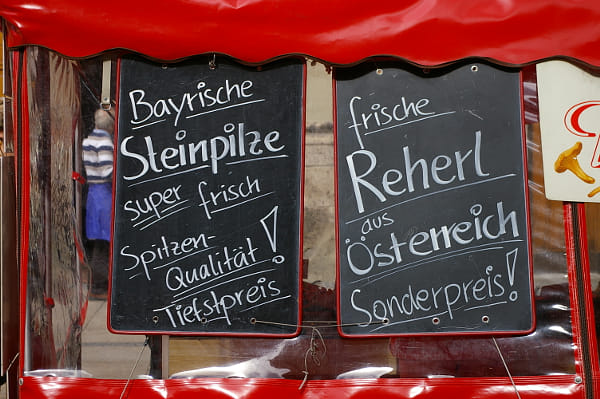 Bayrische
Steinpilze
super frisch
Spitzen-
Qualität!
Tiefstpreis
frische
Reherl
aus
Österreich
Sonderpreis!